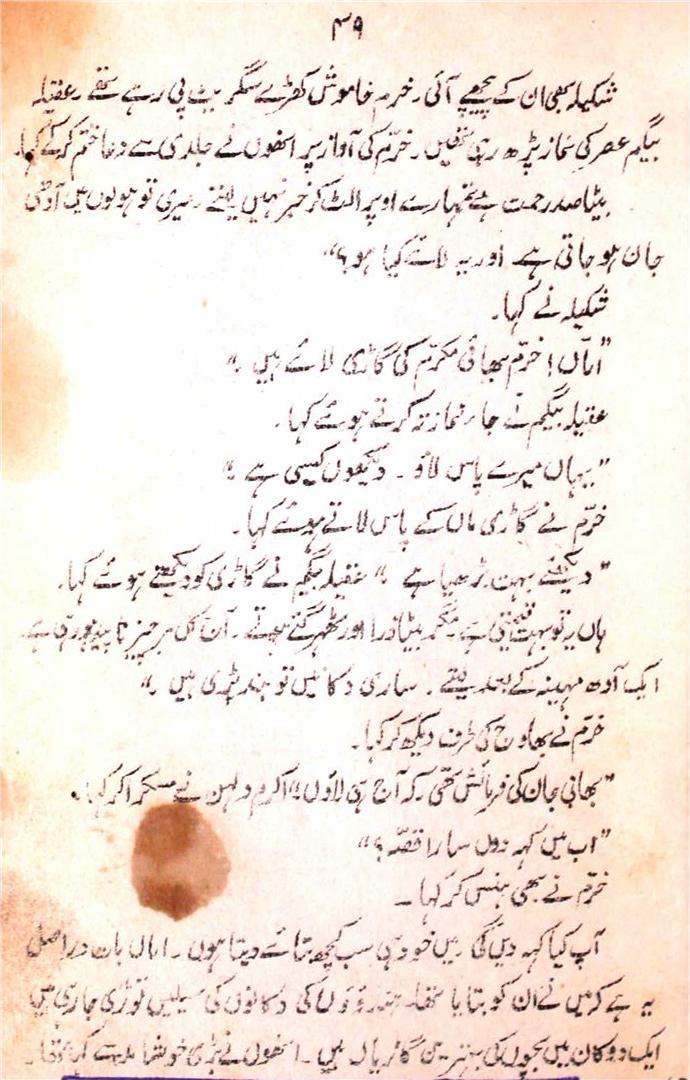 ۴۹
شکیلہ بھی ان کے پیچھے آئی۔ خرم خاموش کھڑے سگریٹ پی رہے تھے۔ عقیلہ
بیگم عصر کی نماز پڑھ رہی تھیں۔ خرّم کی آواز پر انھوں نے جلدی سے دعا ختم کر کے کہا۔
بیٹا صدر رحمت ہے تمہارے اوپر الٹ کر خبر نہیں لیتے۔ میری تو ہولوں میں آدھی
جان ہو جاتی ہے۔ اور یہ لائے کیا ہو؟“
شکیلہ نے کہا۔
”اماں! خرّم بھائی مکرّم کی گاڑی لائے ہیں۔“
عقیلہ بیگم نے جاء نماز تہ کرتے ہوئے کہا۔
”یہاں میرے پاس لاؤ۔ دیکھوں کیسی ہے“
خرّم نے گاڑی ماں کے پاس لاتے ہوئے کہا۔
”دیکھئے بہت بڑھیا ہے“ عقیلہ بیگم نے گاڑی کو دیکھتے ہوئے کہا۔
ہاں یہ تو بہت قیمتی ہے۔ مگر بیٹا ذرا اور ٹھہر گئے ہوتے۔ آن کل ہر چیز ناپید ہو رہی ہے۔
ایک آدھ مہینہ کے بعد لیتے۔ ساری دکانیں تو بند پڑی ہیں۔“
خرّم نے بھاوج کی طرف دیکھ کر کہا۔
”بھابی جان کی فرمائش تھی۔ کہ آج ہی لاؤں“ اکرم دلہن نے مسکرا کر کہا۔
”اب میں کہہ دوں سارا قصّہ؟“
خرّم نے بھی ہنس کر کہا۔
آپ کیا کہہ دیں گی۔ میں خود ہی سب کچھ بتائے دیتا ہوں۔ اماں بات دراصل
یہ ہے کہ میں نے ان کو بتایا تھا۔ ہندوؤں کی دکانوں کی سیلیں توڑی جا رہی ہیں
ایک دوکان میں بچوں کی بہترین گاڑیاں ہیں۔ انھوں نے بڑی خوشامد سے کہا تھا۔